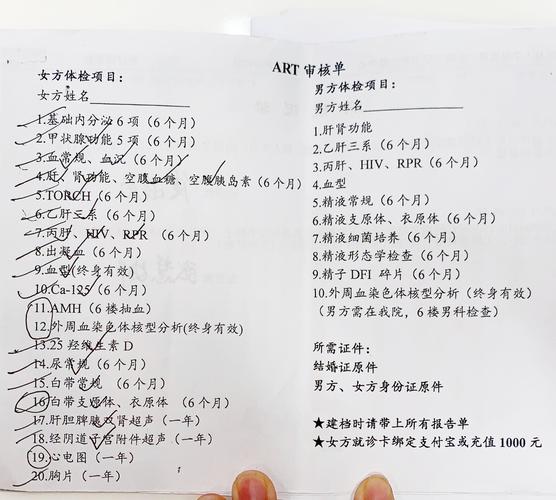 ART 审核单
女方体检项目：
女方姓名
1.基础内分泌 6 项（6 个月）
2.甲状腺功能 5 项（6 个月）
3.血常规、血沉（6 个月）
4.肝、肾功能、空腹血糖、空腹胰岛素（6 个月）
5.TORCH（6 个月）
6.乙肝三系（6 个月）
7.丙肝、HIV、RPR （6 个月）
8.出凝血（6 个月）
9.血型(终身有效)
10.Ca-125（6 个月）
11.AMH（6 楼抽血）
12.外周血染色体核型分析(终身有效)
13.25 羟维生素 D
14.尿常规（6 个月）
15.白带常规 （6 个月）
16.白带支原体、衣原体 （6 个月）
17.肝胆脾胰双肾超声（一年）
18.经阴道子宫附件超声（一年）
19.心电图（一年）
20.胸片（一年）
男方体检项目：
男方姓名
1.肝肾功能
2.乙肝三系（6 个月）
3.丙肝、HIV、RPR（6 个月）
4.血型
5.精液常规（6 个月）
6.精液支原体、衣原体（6 个月）
7.精液细菌培养（6 个月）
8.精液形态学检查（6 个月）
9.精子 DFI 碎片（6 个月）
10.外周血染色体核型分析（终身有效）
（男方需在我院，6 楼男科检查）
所需证件：
结婚证原件
男方、女方身份证原件
★建档时请带上所有报告单
★女方就诊卡绑定支付宝或充值 1000 元